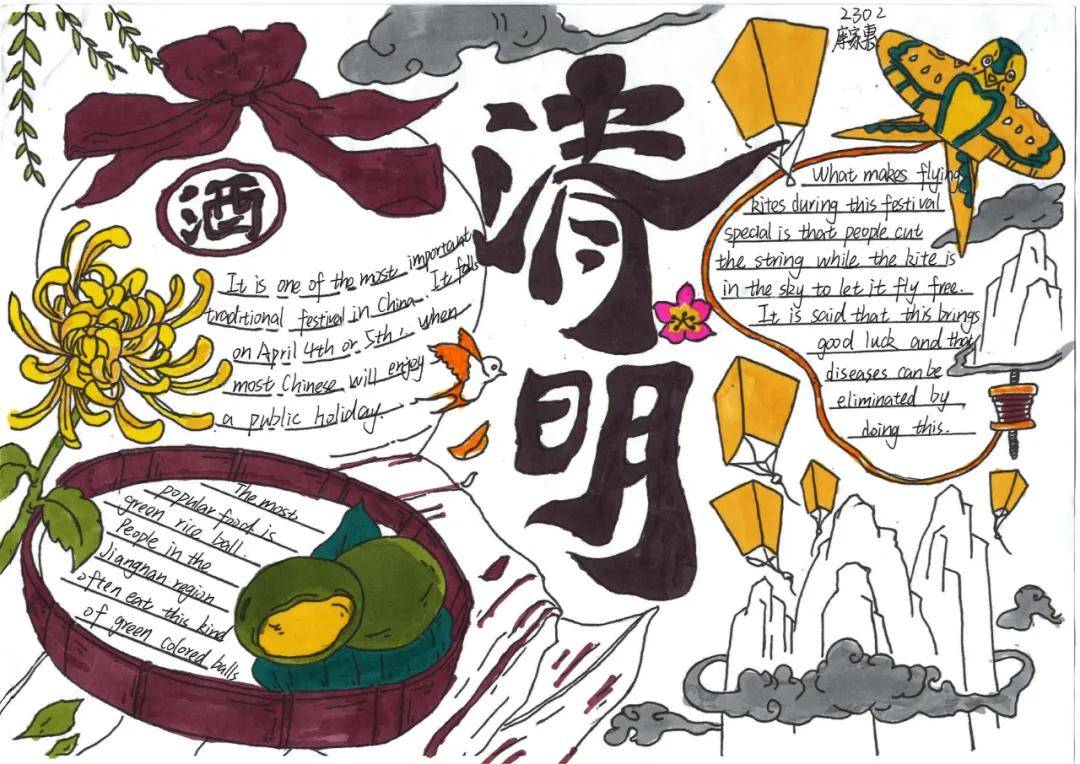 2302
清明
酒
It is one of the most important
traditional festival in China. It falls
on April 4th or 5th, when
most Chinese will enjoy
a public holiday.
The most
popular food is
green rice ball.
People in the
Jiangnan region
often eat this kind
of green colored balls
What makes flying
kites during this festival
special is that people cut
the string while the kite is
in the sky to let it fly free.
It is said that this brings
good luck and that
diseases can be
eliminated by
doing this.